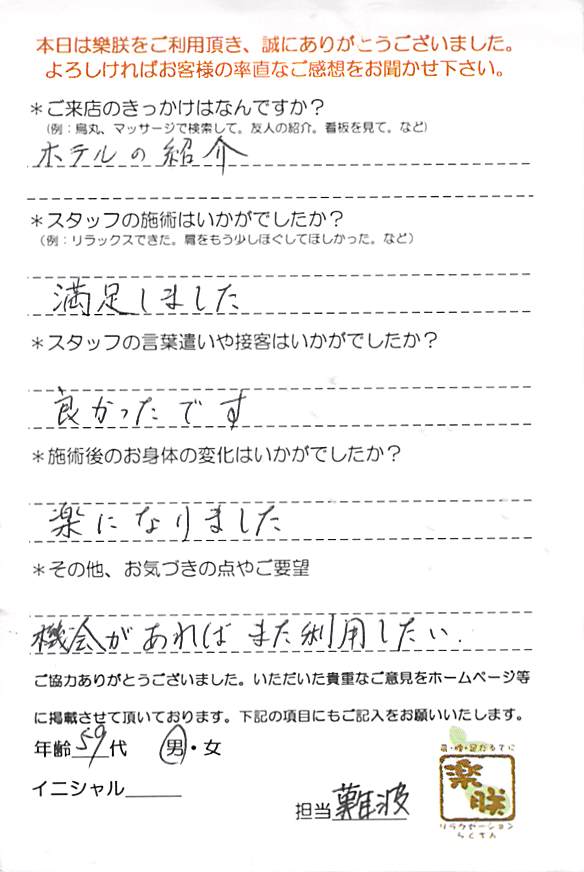 本日は樂朕をご利用頂き、誠にありがとうございました。
よろしければお客様の率直なご感想をお聞かせ下さい。
＊ご来店のきっかけはなんですか？
(例：烏丸、マッサージで検索して。友人の紹介。看板を見て。など)
ホテルの紹介
＊スタッフの施術はいかがでしたか？
(例：リラックスできた。肩をもう少しほぐしてほしかった。など)
満足しました
＊スタッフの言葉遣いや接客はいかがでしたか？
良かったです
＊施術後のお身体の変化はいかがでしたか？
楽になりました
＊その他、お気づきの点やご要望
機会があればまた利用したい.
ご協力ありがとうございました。いただいた貴重なご意見をホームページ等
に掲載させて頂いております。下記の項目にもご記入をお願いいたします。
年齢59代 男・女
イニシャル
担当 難波
楽朕
リラクゼーション
らくちん